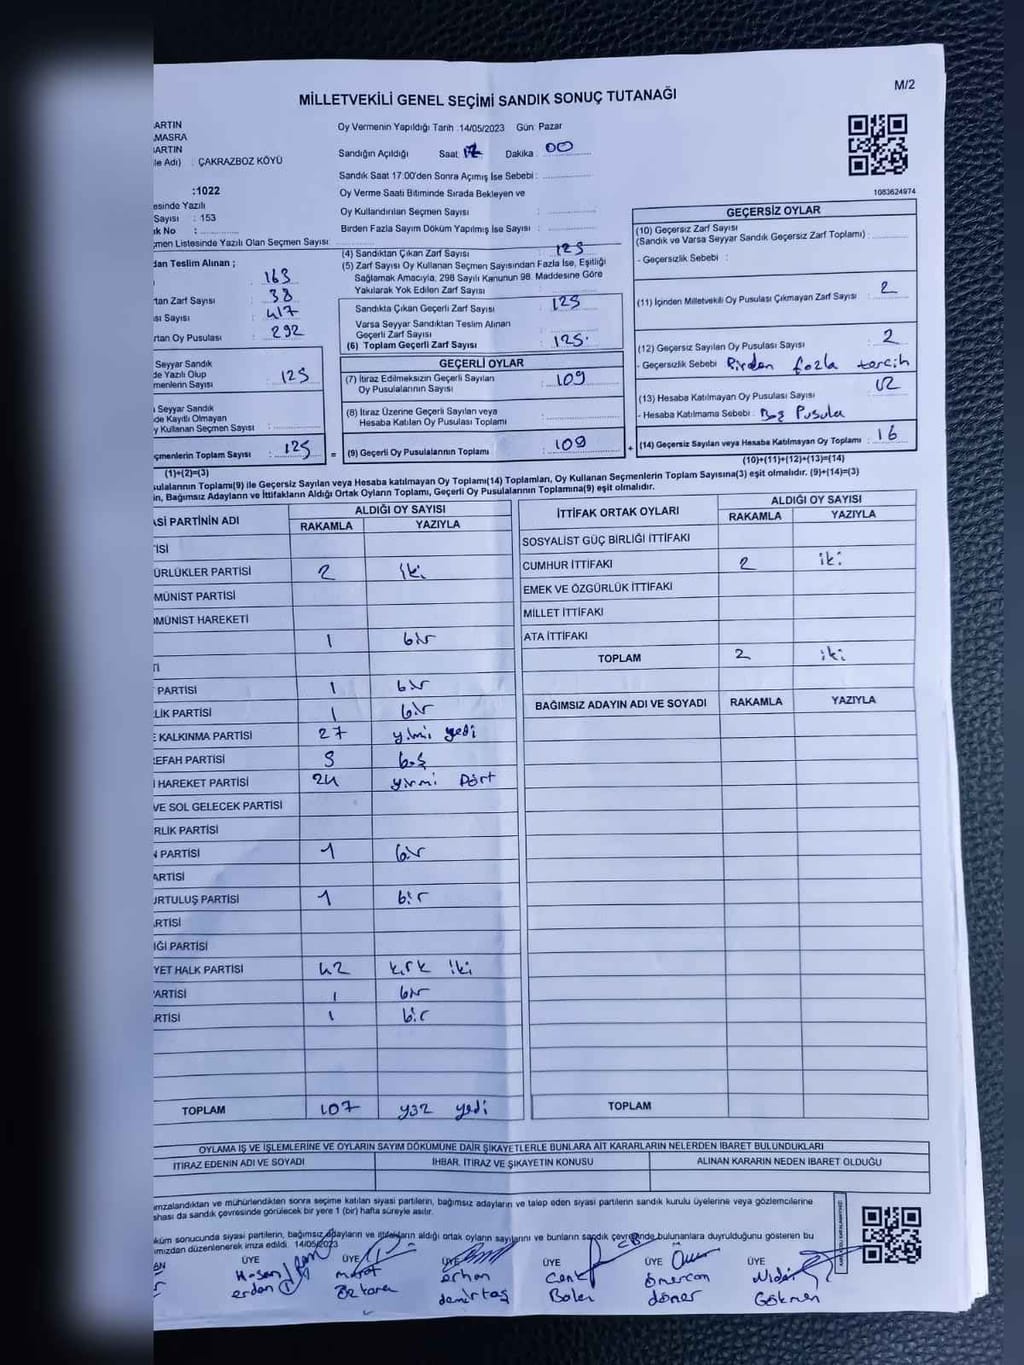 M/2
MİLLETVEKİLİ GENEL SEÇİMİ SANDIK SONUÇ TUTANAĞI
ARTIN
MASRA
ARTIN
le Adı) : ÇAKRAZBOZ KÖYÜ
:1022
esinde Yazılı
Sayısı : 153
ık No :
çmen Listesinde Yazılı Olan Seçmen Sayısı :
dan Teslim Alınan ;
163
rtan Zarf Sayısı 38
ası Sayısı : 417
rtan Oy Pusulası : 292
Seyyar Sandık
de Yazılı Olup
menlerin Sayısı : 125
Seyyar Sandık
de Kayıtlı Olmayan
y Kullanan Seçmen Sayısı :
çmenlerin Toplam Sayısı : 125
(1)+(2)=(3)
Oy Vermenin Yapıldığı Tarih :14/05/2023 Gün: Pazar
Sandığın Açıldığı Saat: 17 Dakika : 00
Sandık Saat 17:00'den Sonra Açımış İse Sebebi :
Oy Verme Saati Bitiminde Sırada Bekleyen ve
Oy Kullandırılan Seçmen Sayısı :
Birden Fazla Sayım Döküm Yapılmış İse Sayısı :
(4) Sandıktan Çıkan Zarf Sayısı : 125
(5) Zarf Sayısı Oy Kullanan Seçmen Sayısından Fazla İse, Eşitliği
Sağlamak Amacıyla, 298 Sayılı Kanunun 98. Maddesine Göre
Yakılarak Yok Edilen Zarf Sayısı :
Sandıkta Çıkan Geçerli Zarf Sayısı : 125
Varsa Seyyar Sandıktan Teslim Alınan
Geçerli Zarf Sayısı
(6) Toplam Geçerli Zarf Sayısı : 125
GEÇERLİ OYLAR
(7) İtiraz Edilmeksizin Geçerli Sayılan
Oy Pusulalarının Sayısı : 109
(8) İtiraz Üzerine Geçerli Sayılan veya
Hesaba Katılan Oy Pusulaları Toplamı :
= (9) Geçerli Oy Pusulalarının Toplamı : 109 +
1083624974
GEÇERSİZ OYLAR
(10) Geçersiz Zarf Sayısı
(Sandık ve Varsa Seyyar Sandık Geçersiz Zarf Toplamı) :
- Geçersizlik Sebebi :
(11) İçinden Milletvekili Oy Pusulası Çıkmayan Zarf Sayısı : 2
(12) Geçersiz Sayılan Oy Pusulası Sayısı : 2
- Geçersizlik Sebebi : Birden fazla tercih
(13) Hesaba Katılmayan Oy Pusulası Sayısı : 12
- Hesaba Katılmama Sebebi : Boş Pusula
(14) Geçersiz Sayılan veya Hesaba Katılmayan Oy Toplamı : 16
(10)+(11)+(12)+(13)=(14)
sulalarının Toplamı(9) ile Geçersiz Sayılan veya Hesaba katılmayan Oy Toplamı(14) Toplamları, Oy Kullanan Seçmenlerin Toplam Sayısına(3) eşit olmalıdır. (9)+(14)=(3)
in, Bağımsız Adayların ve İttifakların Aldığı Ortak Oyların Toplamı, Geçerli Oy Pusulalarının Toplamına(9) eşit olmalıdır.
ASİ PARTİNİN ADI ALDIĞI OY SAYISI
RAKAMLA YAZIYLA
TİSİ
ÜRLÜKLER PARTİSİ 2 iki
MÜNİST PARTİSİ
OMÜNİST HAREKETİ
1 bir
Tİ
PARTİSİ 1 bir
LİK PARTİSİ 1 bir
E KALKINMA PARTİSİ 27 yimi yedi
EFAH PARTİSİ 5 beş
İ HAREKET PARTİSİ 24 yirmi Dört
VE SOL GELECEK PARTİSİ
RLİK PARTİSİ
N PARTİSİ 1 bir
ARTİSİ
URTULUŞ PARTİSİ 1 bir
RTİSİ
İĞİ PARTİSİ
YET HALK PARTİSİ 42 kırk iki
PARTİSİ 1 bir
RTİSİ 1 bir
TOPLAM 107 yüz yedi
İTTİFAK ORTAK OYLARI ALDIĞI OY SAYISI
RAKAMLA YAZIYLA
SOSYALİST GÜÇ BİRLİĞİ İTTİFAKI
CUMHUR İTTİFAKI 2 iki
EMEK VE ÖZGÜRLÜK İTTİFAKI
MİLLET İTTİFAKI
ATA İTTİFAKI
TOPLAM 2 iki
BAĞIMSIZ ADAYIN ADI VE SOYADI RAKAMLA YAZIYLA
TOPLAM
OYLAMA İŞ VE İŞLEMLERİNE VE OYLARIN SAYIM DÖKÜMÜNE DAİR ŞİKAYETLERLE BUNLARA AİT KARARLARIN NELERDEN İBARET BULUNDUKLARI
İTİRAZ EDENİN ADI VE SOYADI İHBAR, İTİRAZ VE ŞİKAYETİN KONUSU ALINAN KARARIN NEDEN İBARET OLDUĞU
mzalandıktan ve mühürlendikten sonra seçime katılan siyasi partilerin, bağımsız adayların ve talep eden siyasi partilerin sandık kurulu üyelerine veya gözlemcilerine
shası da sandık çevresinde görülecek bir yere 1 (bir) hafta süreyle asılır.
küm sonucunda siyasi partilerin, bağımsız adayların ve ittifakların aldığı ortak oyların sayılarını ve bunların sandık çevresinde bulunanlara duyurulduğunu gösteren bu
ımızdan düzenlenerek imza edildi. 14/05/2023
AN ÜYE ÜYE ÜYE ÜYE ÜYE ÜYE
Hasan Murat erhan Cenk Önercan Nider
erdan Öztara demirtaş döner Gökmen